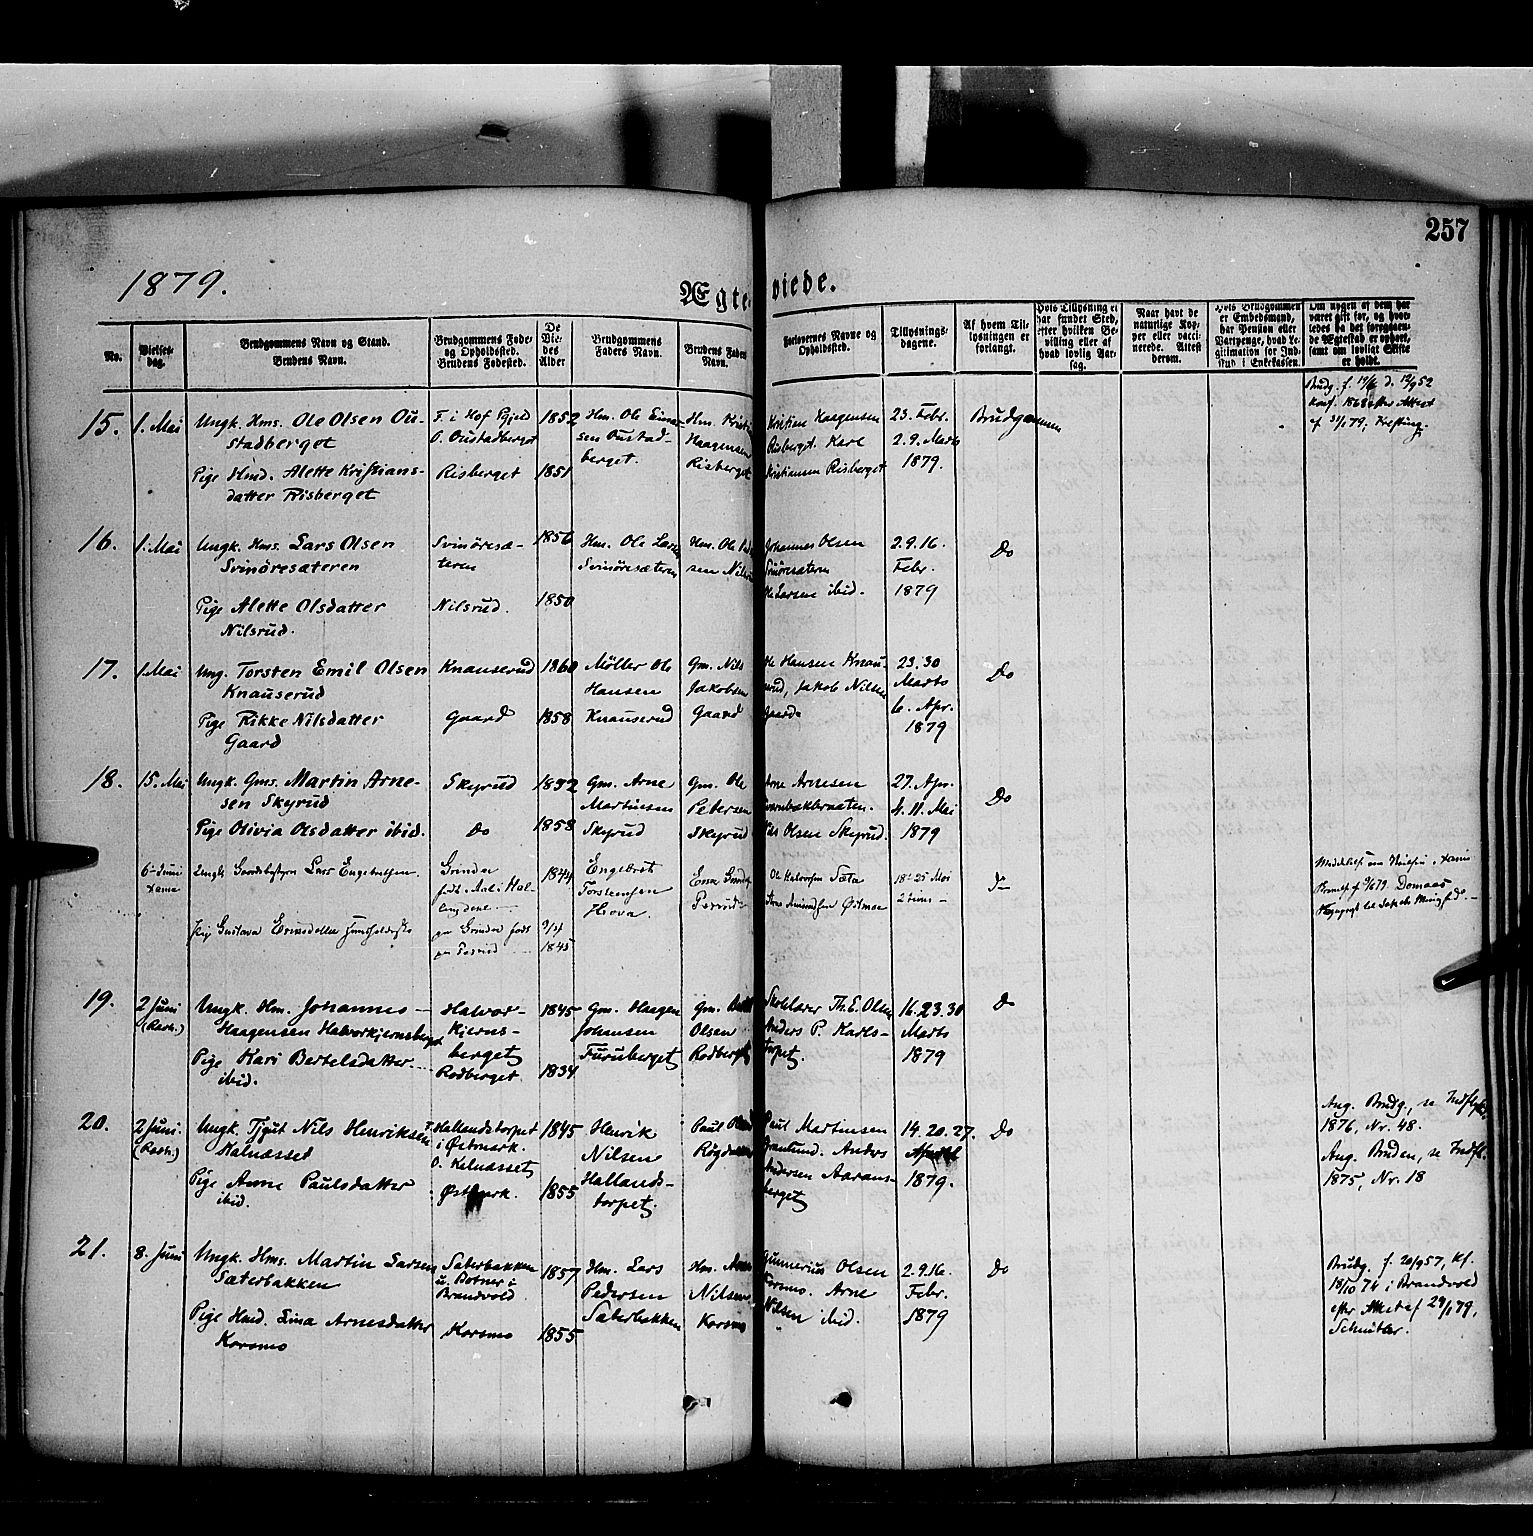 257
1879.
Ægteviede.
No.
Vielses-
dag.
Brudgommens Navn og Stand.
Brudens Navn.
Brudgommens Føde-
og Opholdssted.
Brudens Fødested.
De
Vie-
des
Alder
Brudgommens
Faders Navn.
Brudens Faders
Navn.
Forlovernes Navne og
Opholdssted.
Tillysnings-
dagene.
Af hvem Til-
lysningen er
forlangt.
Hvis Tillysning ei
har fundet Sted,
efter hvilken Be-
villing eller af
hvad lovlig Aar-
sag.
Naar havt de
naturlige Kop-
per eller vacci-
nerede. Attest
derom.
Hvis Brudgommen
er Embedsmand,
har Pension eller
Vartpenge, hvad Le-
gitimation for Ind-
skud i Enkekassen.
Om nogen af dem har
været gift før, og hvor-
ledes da det foregaaen-
de Ægteskab er ophørt,
samt om lovligt Skifte
er holdt.
15.
1. Mai
Ungk. Hms. Ole Olsen Ou-
stadberget
Pige Hmd. Alette Kristians-
datter Risberget
F. i Hof Pgjeld
O. Oustadberget
Risberget
1852
1851
Hm. Ole Einar-
sen Oustad-
berget.
Hm. Kristian
Haagensen
Risberget
Kristian Haagensen
Risberget. Karl
Kristiansen Risberget
23. Febr.
2. 9. Marts
1879.
Brudgommen
Konf. 1868 efter Attest
16.
1. Mai
Ungk. Hms. Lars Olsen
Svinöresæteren
Pige Alette Olsdatter
Nilsrud.
Svinöresæ-
teren
Nilsrud.
1856
1850
Hm. Ole Larsen
Svinöresæteren
Hm. Ole
sen Nilsrud
Johannes Olsen
Svinöresæteren
Ole Larsen ibid.
2. 9. 16.
Febr.
1879
Do
17.
1. Mai
Ung. Torsten Emil Olsen
Knauserud
Pige Rikke Nilsdatter
Gaard
Knauserud
Gaard
1860
1858
Möller Ole
Hansen
Knauserud
Gm. Nils
Jakobsen
Gaard
Ole Hansen Knau-
serud, Jakob Nilsen
Gaard
23. 30
Marts
6. Apr.
1879
Do
18.
15. Mai
Ungk. Gms. Martin Arne-
sen Skyrud
Pige Olivia Olsdatter ibid.
Skyrud
Do
1852
1858
Gm. Arne
Martinsen
Skyrud
Gm. Ole
Petersen
Skyrud
Arne Arnesen
Olsen Skyrud.
27. Apr.
4. 11. Mai
1879
Do
6- Juni
Ungk. Gaardbestyrer Lars Engebretsen.
Pige Gustava
Grinder
født Aal i Hal-
lingdal
Grinder født
1844
9/4
1845
Engebret
Torstensen
Hova.
Ole Halvorsen Sæta
Arne Amundsen Östmoe
18- 25 Mai
2 Juni -
19.
2 Juni
Ungk. Hm. Johannes
Haagensen Halvorkjernsberget
Pige Kari Bertelsdatter
ibid.
Halvor-
kjerns-
berget
Rodberget
1845
1834
Gm. Haagen
Johansen
Furuberget
Gm. Bertel
Olsen
Rodberget
Skolelærer Th. E. Olsen
Anders P. Karls-
torpet.
16. 23. 30
Marts
1879
Do
20.
2 Juni.
Ungk. Tjgut Nils Henriksen
Kalnæsset
Pige Anne Paulsdatter
ibid.
F. Hallandstorpet
i Östmark.
O. Kalnæsset
Östmark.
1845
1855
Henrik
Nilsen
Hallands-
torpet.
Paul
Paul Martinsen
Granlund. Anders
Andersen Aarans-
berget
14. 20. 27.
April
1879.
Do
Ang. Brudg., se Indfl.
1876, Nr. 48.
Ang. Bruden, se Indfl.
1875, Nr. 18
21.
8. Juni
Ungk. Hms. Martin Larsen
Sæterbakken
Pige Hmd. Lina Arnesdatter
Korsmo
Sæterbakken
u. Botner i
Brandvold
Korsmo
1857
1855
Hm. Lars
Pedersen
Sæterbakken
Hm. Arne
Nilsen
Korsmo
Gunnerius Olsen
Korsmo. Arne
Nilsen ibid.
2. 9. 16.
Febr.
1879
Do
Brudg. f. 20/9 57, Kf.
18/10 74 i Brandvold
efter Attest af 29/1 79,
Schnitler.